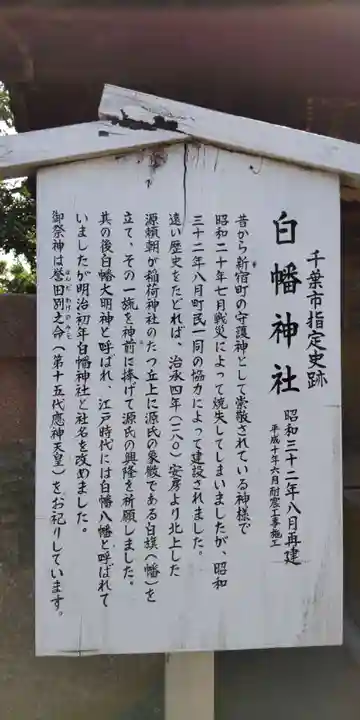 千葉市指定史跡
白幡神社
昭和三十二年八月再建
平成十年六月耐震工事施工
昔から新宿町の守護神として崇敬されている神様で
昭和二十年七月戦災によって焼失してしまいましたが、昭和
三十二年八月町民一同の協力によって建設されました。
遠い歴史をたどれば、治承四年(一一八〇)安房より北上した
源頼朝が稲荷神社のたつ丘上に源氏の象徴である白旗(幡)を
立て、その一旒を神前に捧げて源氏の興隆を祈願しました。
其の後白幡大明神と呼ばれ、江戸時代には白幡八幡と呼ばれて
いましたが明治初年白幡神社と社名を改めました。
御祭神は誉田別之命(第十五代應神天皇)をお祀りしています。